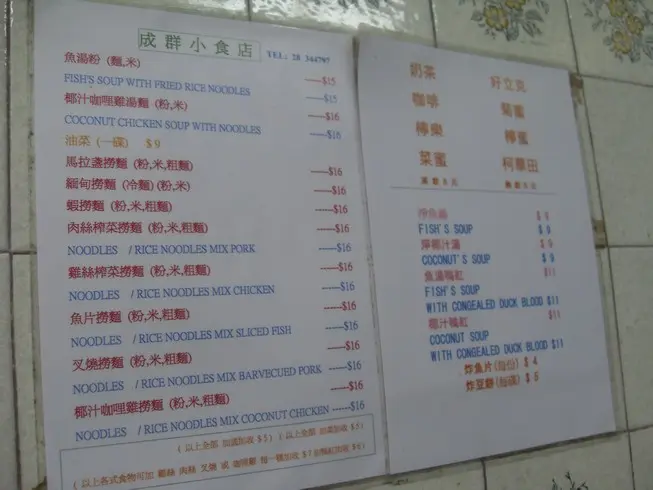 成群小食店 TEL: 28 344797
魚湯粉 (麵,米) -----$15
FISH'S SOUP WITH FRIED RICE NOODLES -----$15
椰汁咖喱雞湯麵 (粉,米) -----$16
COCONUT CHICKEN SOUP WITH NOODLES -----$16
油菜 (一碟) $9
馬拉盞撈麵 (粉,米,粗麵) -----$16
緬甸撈麵 (冷麵) (粉,米) -----$16
蝦撈麵 (粉,米,粗麵) -----$16
肉絲榨菜撈麵 (粉,米,粗麵) -----$16
NOODLES / RICE NOODLES MIX PORK -----$16
雞絲榨菜撈麵 (粉,米,粗麵) -----$16
NOODLES / RICE NOODLES MIX CHICKEN -----$16
魚片撈麵 (粉,米,粗麵) -----$16
NOODLES / RICE NOODLES MIX SLICED FISH -----$16
叉燒撈麵 (粉,米,粗麵) -----$16
NOODLES / RICE NOODLES MIX BARVECUED PORK -----$16
椰汁咖哩雞撈麵 (粉,米,粗麵) -----$16
NOODLES / RICE NOODLES MIX COCONUT CHICKEN ------$16
(以上全部 加 $5) (以上全部 加 $5)
(以上各式食物可加 雞絲 肉絲 叉燒 或 咖喱雞 每一 加收 $7 加收 $6)
奶茶 好立克
咖啡 菊蜜
檸樂 檸蜜
菜蜜 柯華田
淨魚湯 $9
FISH'S SOUP $9
淨椰汁湯 $9
COCONUT'S SOUP $9
魚湯鴨紅 $11
FISH'S SOUP
WITH CONGEALED DUCK BLOOD $11
椰汁鴨紅 $11
COCONUT SOUP
WITH CONGEALED DUCK BLOOD $11
炸魚片(每份) $4
炸豆餅(每碟) $5